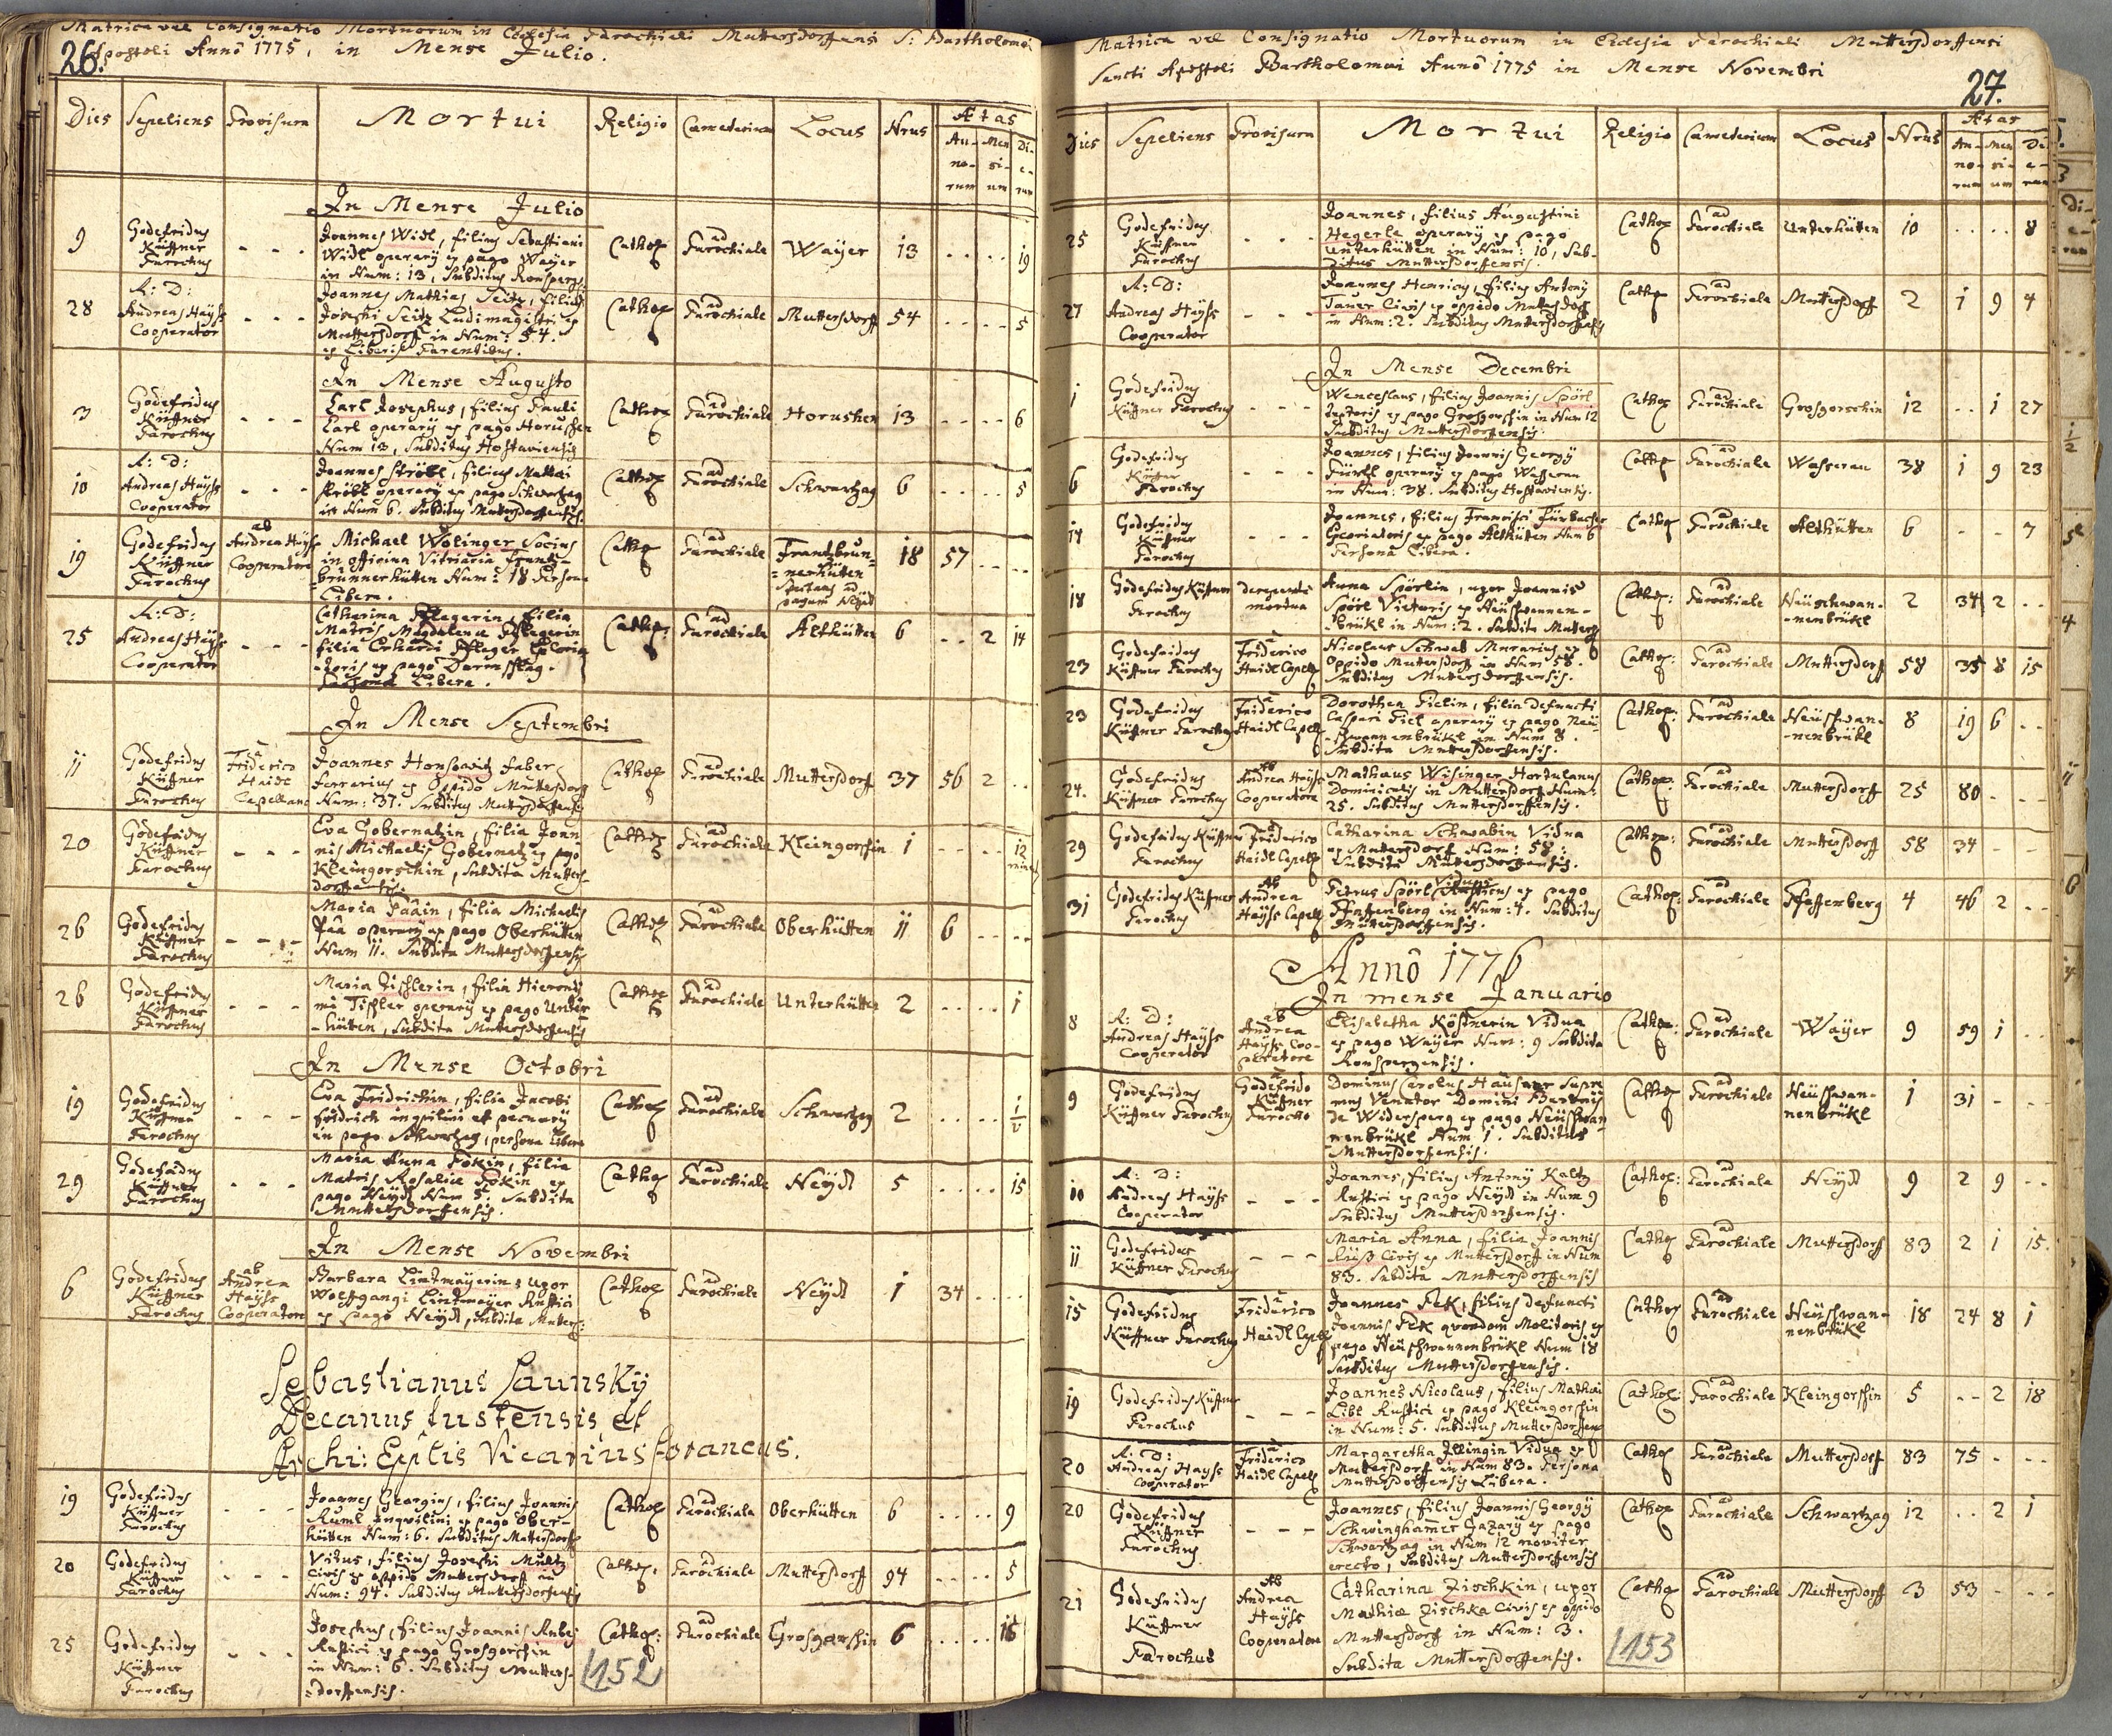 Matrica vel Consignatio Mortuorum in Ecclesia Parochiali Muttersdorffensi S: Bartholomei
26. Apostoli Annô 1775, in Mense Julio.
Dies Sepeliens Provisura Mortui Religio Caemeterium Locus Nrus Ætas
An- Men Di-
no- si- e-
rum um rum
In Mense Julio
9 Godefridus Küffner Parochus - - - Joannes Widl, filius Sebastiani
Widl operarÿ ex pago Waÿer
in Num: 13, Subditus Ronsperg:
Cathol ad Parochiale Waÿer 13 . . . . . 19
28 A: D: Andreas Haÿss Cooperator - - - Joannes Mathias Seitz, filius
Josephi Seitz Ludimagistri ex
Muttersdorff in Num: 54.
ex Liberis Parentibus.
Cathol ad Parochiale Muttersdorff 54 - - - - 5
In Mense Augusto
3 Godefridus Küffner Parochus - - - Carl Josephus, filius Pauli
Carl operarÿ ex pago Horushen
Num 13, Subditus Hostaviensis
Cathol ad Parochiale Horushen 13 - - - - 6
10 A: D: Andreas Haÿss Cooperator - - - Joannes Ströbl, filius Mathæi
Ströbl operarÿ ex pago Schwartzag
in Num 6. Subditus Muttersdorffensis
Cathol ad Parochiale Schwartzag 6 . . . . . 5
19 Godefridus Küffner Parochus ab Andrea Haÿss Cooperatore Michael Wölinger Socius
in officina Vitriaria Frantz-
brunnerhütten Num: 18 Persona
Libera.
Cathol ad Parochiale Frantzbrun-
=nerhütten
Spectans ad
pagum Neÿdl
18 57 - - - -
25 A: D: Andreas Haÿss Cooperator - - - Catharina Pflegerin, filia
Matris Magdalenæ Pflegerin
filia Erhardi Pfleger
ex pago
Persona Libera.
Cathol: ad Parochiale Althütten 6 . . 2 14
In Mense Septembri
11 Godefridus Küffner Parochus a Friderico Haidl Capellano Joannes Honsowitz faber
ferrarius ex Oppido Muttersdorff
Num: 37. Subditus Muttersdorffensis
Cathol ad Parochiale Muttersdorff 37 56 2 . .
20 Godefridus Küffner Parochus - - - Eva Gobernatzin, filia Joan-
nis Michaelis Gobernatz ex pago
Kleingorschin, Subdita Mutters-
dorffensis.
Cathol ad Parochiale Kleingorschin 1 - - - - 12
26 Godefridus Küffner Parochus - - - Maria Pââin, filia Michaelis
Pââ operarÿ ex pago Oberhütten
Num 11. Subdita Muttersdorffensis
Cathol ad Parochiale Oberhütten 11 6 - - - -
26 Godefridus Küffner Parochus - - - Maria Tischlerin, filia Hieronÿ
mi Tischler operarÿ ex pago Unter
-hütten, Subdita Muttersdorffensis
Cathol ad Parochiale Unterhütten 2 . . . . . 1
In Mense Octobri
19 Godefridus Küffner Parochus - - - Eva Fridrichin, filia Jacobi
Fridrich inquilini et pecuarÿ
in pago Schwartzag, persona Libera
Cathol ad Parochiale Schwartzag 2 . . . . . 1/2
29 Godefridus Küffner Parochus - - - Maria Anna Fokin, filia
Matris Rosaliæ Fokin ex
pago Neÿdl Num 5. Subdita
Muttersdorffensis.
Cathol ad Parochiale Neÿdl 5 . . . . . 15
In Mense Novembri
6 Godefridus Küffner Parochus ab Andrea Haÿss Cooperatore Barbara Lindmaÿerin, uxor
Wolffgangi Lindmaÿer Rustici
ex pago Neÿdl, Subdita Mutters:
Cathol ad Parochiale Neÿdl 1 34 . . . .
Sebastianus Launsky
Decanus tustensis, et
Archi: Epptis Vicarius foraneus.
19 Godefridus Küffner Parochus - - - Joannes Georgius, filius Joannis
Ruml inquilini ex pago Ober-
hütten Num: 6. Subditus Muttersdorff
Cathol ad Parochiale Oberhütten 6 . . . . . 9
20 Godefridus Küffner Parochus - - - Vitus, filius Josephi Multz
Civis ex oppido Muttersdorff in
Num: 94. Subditus Muttersdorffensis
Cathol: ad Parochiale Muttersdorff 94 - - - - 5
25 Godefridus Küffner Parochus - - - Josephus, filius Joannis
Rustici ex pago Grosgorschin
in Num: 6. Subditus Mutters-
=dorffensis.
Cathol: ad Parochiale Grosgorschin 6 . . . . .
152
Matrica vel Consignatio Mortuorum in Ecclesia Parochiali Muttersdorffensi
Sancti Apostoli Bartholomæi Annô 1775 in Mense Novembri
27.
Dies Sepeliens Provisura Mortui Religio Caemeterium Locus Nrus Ætas
An- Men Di-
no- si- e-
rum um rum
25 Godefridus Küffner Parochus - - - Joannes, filius Augustini
Hegerle operarÿ ex pago
Unterhütten in Num: 10, Sub-
ditus Muttersdorffensis.
Cathol ad Parochiale Unterhütten 10 . . . . 8
27 A: D: Andreas Haÿss Cooperator - - - Joannes Henricus, filius Antonÿ
Tauer Civis ex oppido Muttersdorff
in Num: 2. Subditus Muttersdorffensis
Cathol ad Parochiale Muttersdorff 2 1 9 4
In Mense Decembri
1 Godefridus Küffner Parochus - - - Wenceslaus, filius Joannis Spörl
textoris ex pago Grosgorschin in Num 12
Subditus Muttersdorffensis.
Cathol ad Parochiale Grosgorschin 12 . . 1 27
6 Godefridus Küffner Parochus - - - Joannes, filius Joannis Georgÿ
operarÿ ex pago Wasserau
in Num: 38. Subditus Hostaviensis.
Cathol ad Parochiale Wasserau 38 1 9 23
14 Godefridus Küffner Parochus - - - Joannes, filius Francisci Fürbacher
ex pago Althütten Num 6
Persona Libera.
Cathol ad Parochiale Althütten 6 - - 7
18 Godefridus Küffner Parochus derepente mortua Anna Spörlin, uxor Joannis
Spörl Vietoris ex Neüschwannen-
-brükl in Num: 2. Subdita Mutters
Cathol: ad Parochiale Neüschwan-
-nenbrükl
2 34 2 . .
23 Godefridus Küffner Parochus a Friderico Haidl Capell Nicolaus Schwab Murarius ex
Oppido Muttersdorff in Num 58.
Subditus Muttersdorffensis.
Cathol: ad Parochiale Muttersdorff 58 35 8 15
23 Godefridus Küffner Parochus a Friderico Haidl Capell Dorothea Pielin, filia defuncti
Caspari Piel operarÿ ex pago Neü-
-schwannenbrükl in Num 8.
Subdita Muttersdorffensis.
Cathol: ad Parochiale Neüschwan-
-nenbrükl
8 19 6 . .
24. Godefridus Küffner Parochus ab Andrea Haÿss Cooperatore Mathæus Wisinger Hortulanus
Dominicalis in Muttersdorff Num:
25. Subditus Muttersdorffensis.
Cathol: ad Parochiale Muttersdorff 25 80 - - -
29 Godefridus Küffner Parochus a Friderico Haidl Capell Catharina Schwabin Vidua
ex Muttersdorff Num: 58:
Subdita Muttersdorffensis.
Cathol: ad Parochiale Muttersdorff 58 34 - -
31 Godefridus Küffner Parochus Ab Andrea Haÿss Capell Petrus Spörl Viduus Rusticus ex pago
Pfaffenberg in Num: 4. Subditus
Muttersdorffensis.
Cathol: ad Parochiale Pfaffenberg 4 46 2 . .
Annô 1776
In mense Januario
8 A: D: Andreas Haÿss Cooperator ab Andrea Haÿss Coo-
peratore
Elisabetha Köstnerin Vidua
ex pago Waÿer Num: 9 Subdita
Ronspergensis.
Cathol: ad Parochiale Waÿer 9 59 1 . .
9 Godefridus Küffner Parochus a Godefrido Küffner Parocho Dominus Carolus Hausner Supre
mus Venator Domini
de Widersperg ex pago Neüschwan-
nenbrükl Num 1. Subditus
Muttersdorffensis.
Cathol ad Parochiale Neüschwan-
nenbrükl
1 31 - - -
10 A: D: Andreas Haÿss Cooperator - - - Joannes, filius Antonÿ Kaltz
Rustici ex pago Neÿdl in Num 9
Subditus Muttersdorffensis.
Cathol: ad Parochiale Neÿdl 9 2 9 - -
11 Godefridus Küffner Parochus - - - Maria Anna, filia Joannis
Civis ex Muttersdorff in Num
83. Subdita Muttersdorffensis
Cathol ad Parochiale Muttersdorff 83 2 1 15.
15 Godefridus Küffner Parochus a Friderico Haidl Capell Joannes Pek, filius defuncti
Joannis Pek quondam Molitoris ex
pago Neüschwannenbrükl Num 18
Subditus Muttersdorffensis.
Cathol ad Parochiale Neüschwan-
nenbrükl
18 24 8 1
19 Godefridus Küffner Parochus - - - Joannes Nicolaus, filius Mathæi
Libl Rustici ex pago Kleingorschin
in Num: 5. Subditus Muttersdorffens
Cathol: ad Parochiale Kleingorschin 5 - - 2 18
20 A: D: Andreas Hayss Cooperator a Friderico Haidl Capell Margaretha Illingin Vidua ex
Muttersdorff in Num 83. Persona
Muttersdorffensis Libera.
Cathol ad Parochiale Muttersdorff 83 75 - - -
20 Godefridus Küffner Parochus - - - Joannes, filius Joannis Georgÿ
Schwinghammer Gazarÿ ex pago
Schwartzag in Num 12 noviter
erecto, Subditus Muttersdorffensis
Cathol ad Parochiale Schwartzag 12 . . 2 1
21 Godefridus Küffner Parochus Ab Andrea Haÿss Cooperatore Catharina Zischkin, uxor
Mathiæ Zischka Civis ex oppido
Muttersdorff in Num: 3.
Subdita Muttersdorffensis.
Cathol ad Parochiale Muttersdorff 3 53 - - -
153